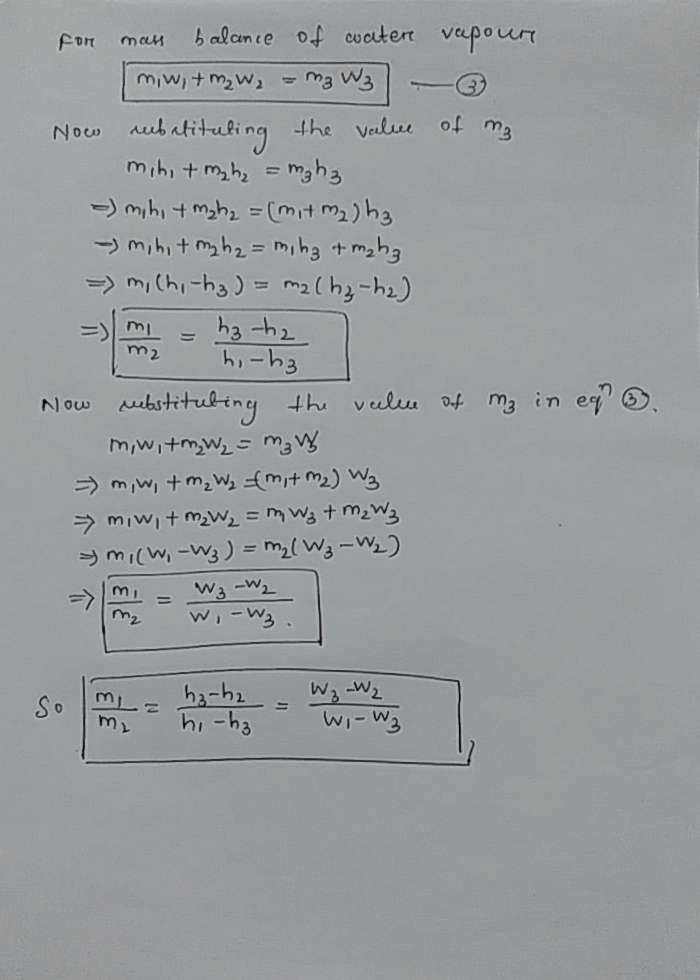 For mass balance of water vapour
m₁W₁ + m₂W₂ = m₃ W₃ — ③
Now substituting the value of m₃
m₁h₁ + m₂h₂ = m₃h₃
⇒ m₁h₁ + m₂h₂ = (m₁ + m₂) h₃
⇒ m₁h₁ + m₂h₂ = m₁h₃ + m₂h₃
⇒ m₁(h₁ - h₃) = m₂(h₃ - h₂)
⇒ m₁/m₂ = (h₃ - h₂)/(h₁ - h₃)
Now substituting the value of m₃ in eqⁿ ③.
m₁W₁ + m₂W₂ = m₃W₃
⇒ m₁W₁ + m₂W₂ = (m₁ + m₂) W₃
⇒ m₁W₁ + m₂W₂ = m₁W₃ + m₂W₃
⇒ m₁(W₁ - W₃) = m₂(W₃ - W₂)
⇒ m₁/m₂ = (W₃ - W₂)/(W₁ - W₃).
So m₁/m₂ = (h₃ - h₂)/(h₁ - h₃) = (W₃ - W₂)/(W₁ - W₃)